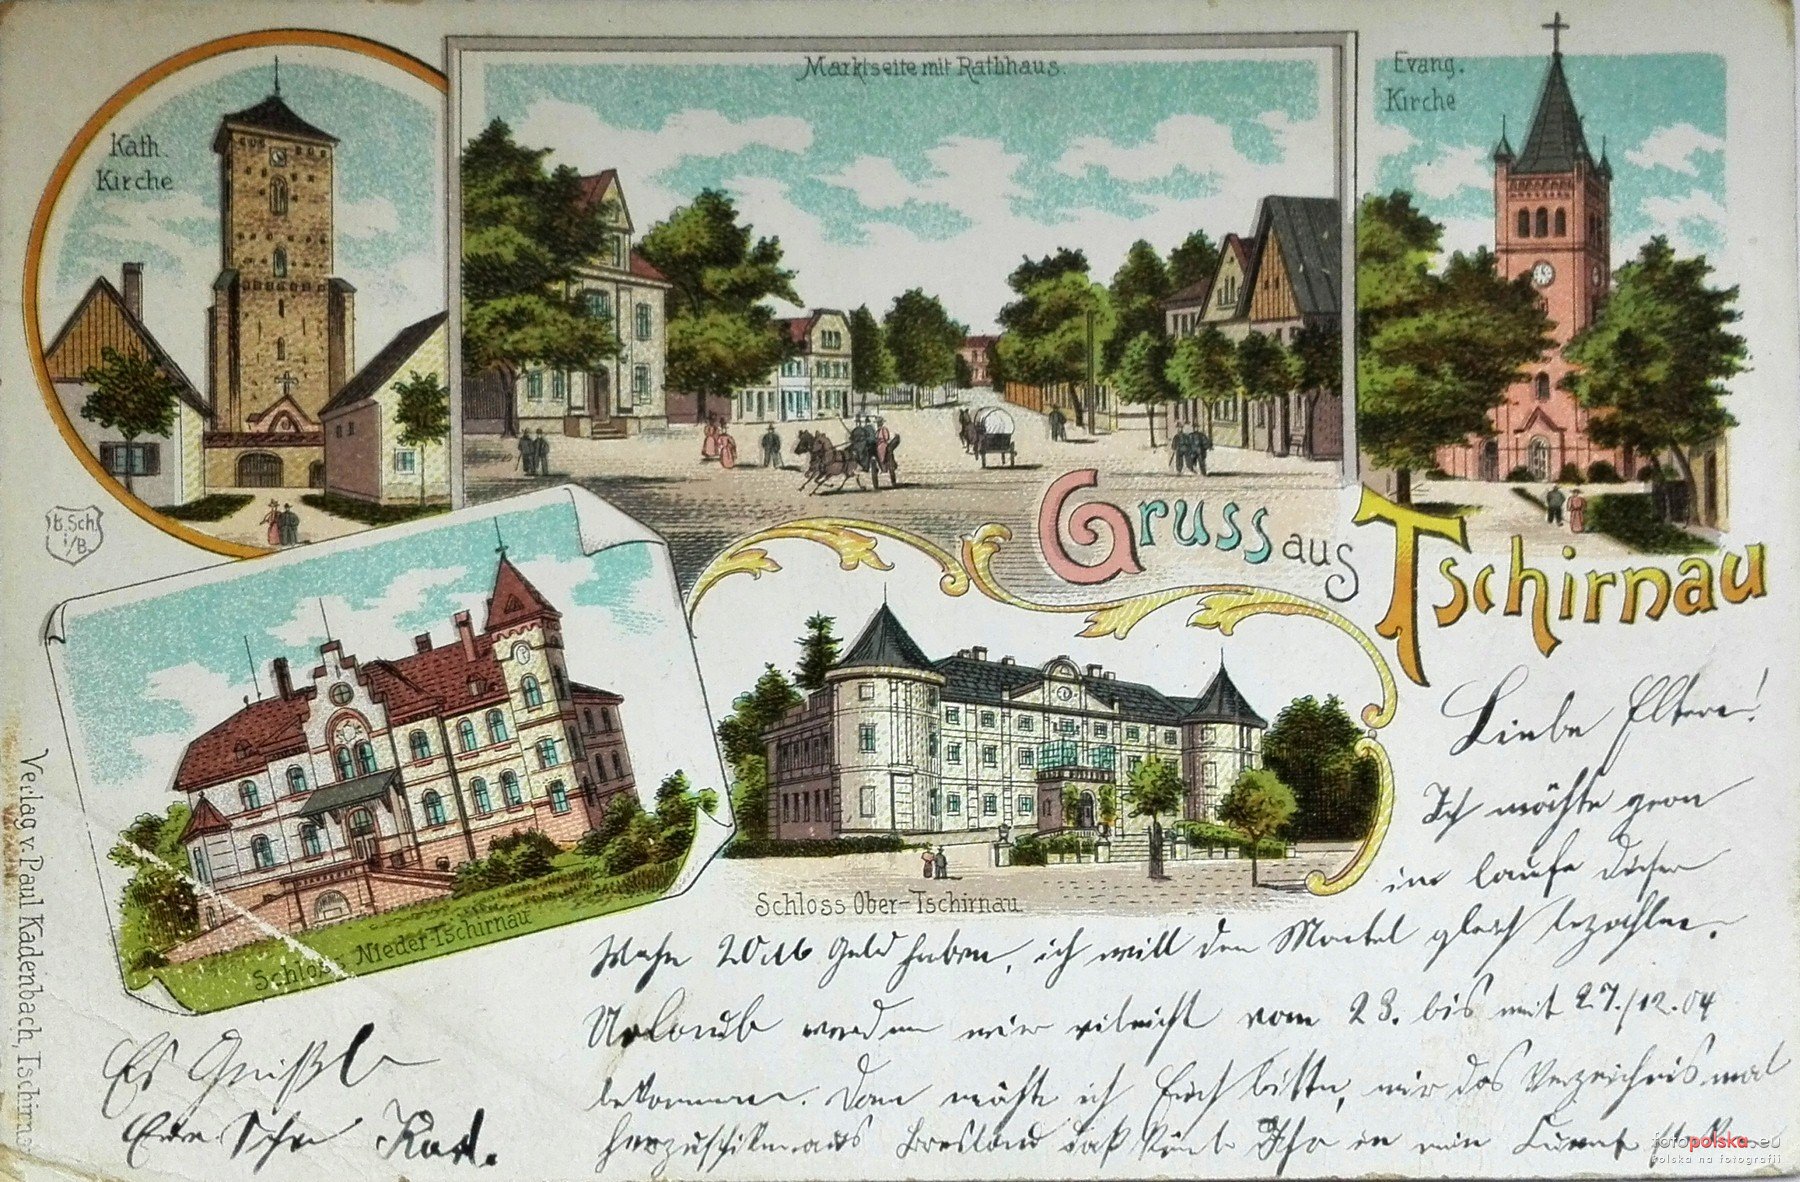 Kath.
Kirche
Marktseite mit Rathhaus.
Evang.
Kirche
Gruss aus Tschirnau
Schloss Nieder-Tschirnau
Schloss Ober-Tschirnau
Verlag v. Paul Kadenbach, Tschirnau
Liebe Eltern!
Ich möchte gern
im laufe dieser
20 M Geld haben, ich will den Mantel gleich bezahlen.
Urlaub werden wir vileicht vom 23. bis mit 27./12.04
bekommen. Dan möchte ich Euch bitten, mir das Verzeichnis mal
Breslau daß Ihr in
Es Grüßt
Eur Sohn
fotopolska.eu
Polska na fotografii